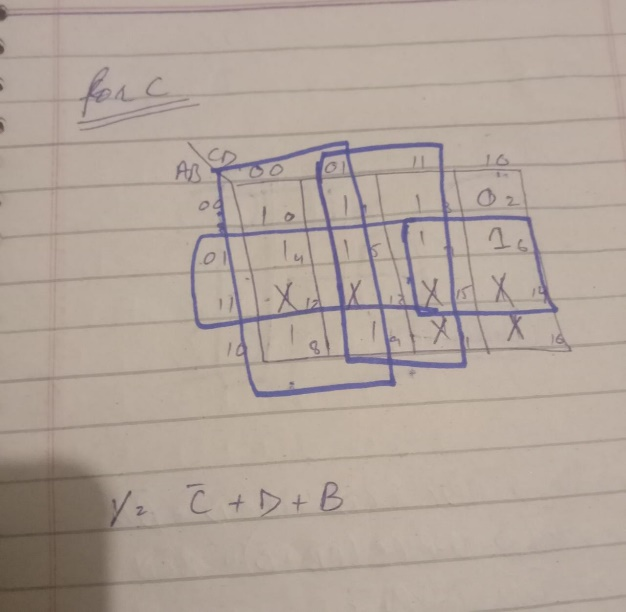 for C
CD
AB 00 01 11 10
00 1 0 1 1 1 3 0 2
01 1 4 1 5 1 7 1 6
11 X 12 X 13 X 15 X 14
10 1 8 1 9 X 11 X 10
Y = C̅ + D + B